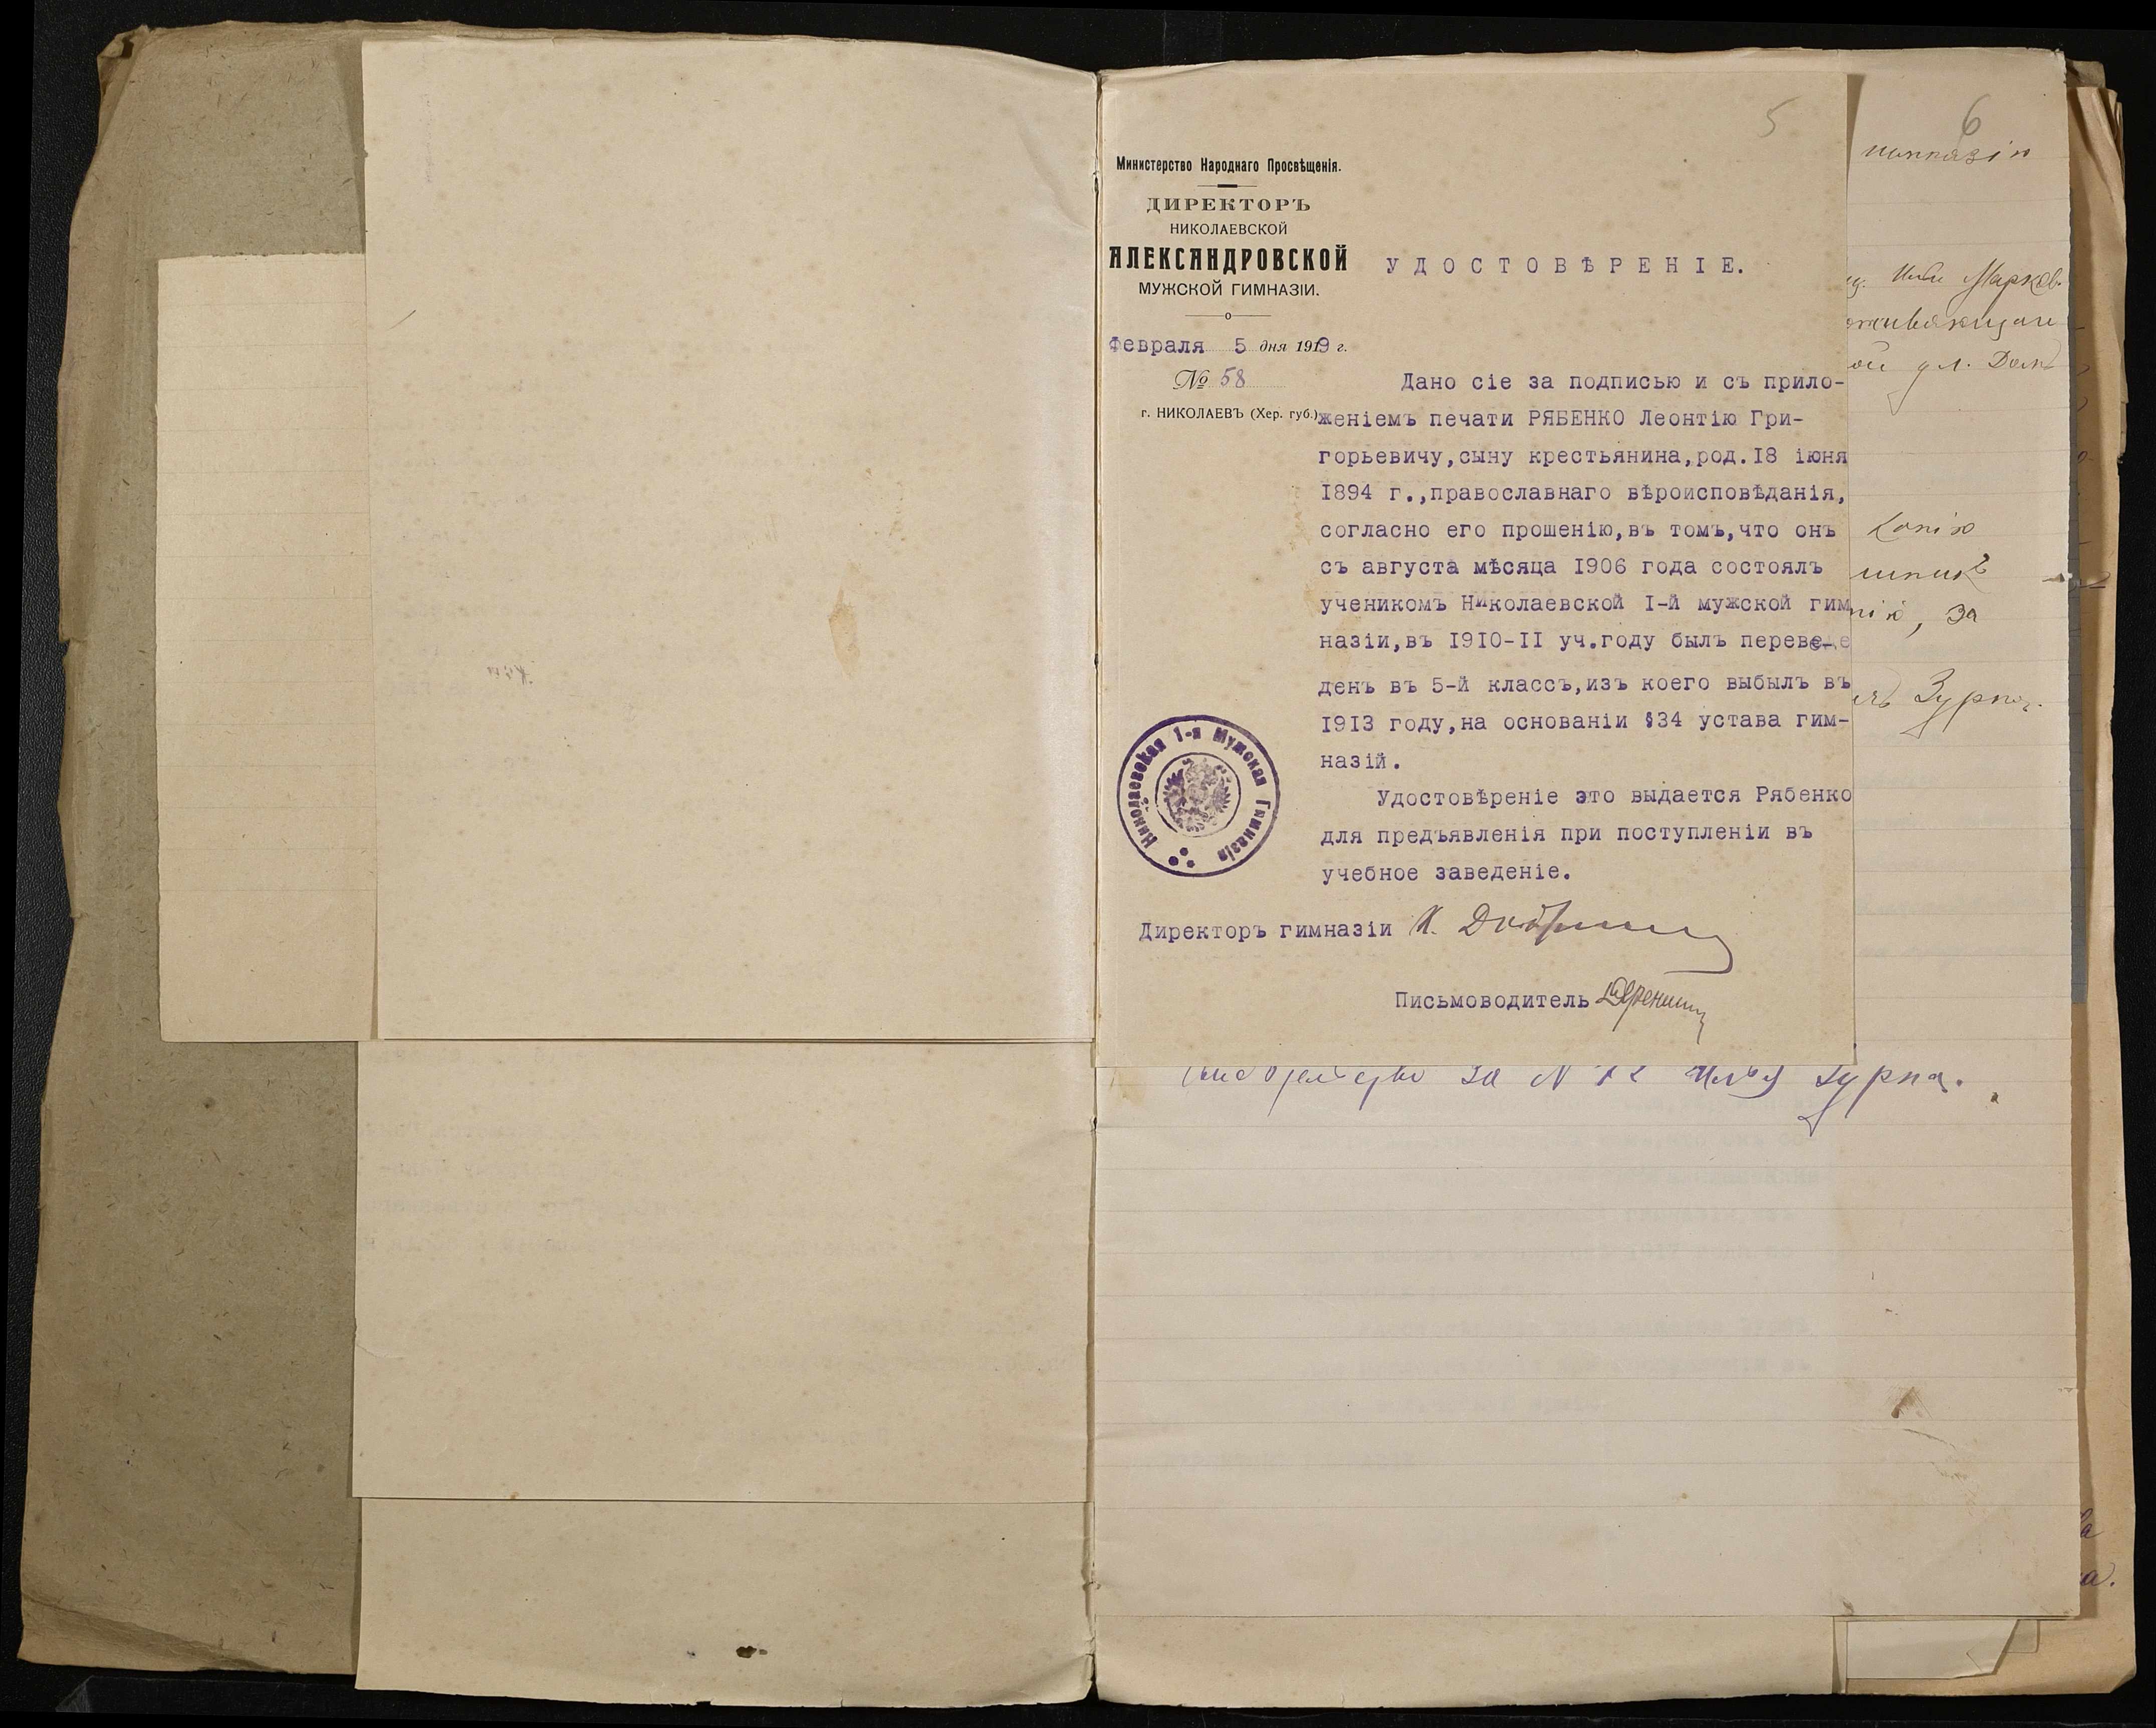 5
6
Министерство Народнаго Просвѣщенія.
ДИРЕКТОРЪ
НИКОЛАЕВСКОЙ
АЛЕКСАНДРОВСКОЙ
МУЖСКОЙ ГИМНАЗІИ.
Февраля 5 дня 1919 г.
№ 58
г. НИКОЛАЕВЪ (Хер. губ.)
УДОСТОВѢРЕНІЕ.
Дано сіе за подписью и съ прило-
женіемъ печати РЯБЕНКО Леонтію Гри-
горьевичу,сыну крестьянина,род.I8 іюня
I894 г.,православнаго вѣроисповѣданія,
согласно его прошенію,въ томъ,что онъ
съ августа мѣсяца I906 года состоялъ
ученикомъ Николаевской I-й мужской гим
назіи,въ I9I0-II уч.году былъ переве-
денъ въ 5-й классъ,изъ коего выбылъ въ
I9I3 году,на основаніи §34 устава гим-
назій.
Удостовѣреніе это выдается Рябенко
для предъявленія при поступленіи въ
учебное заведеніе.
Николаевская 1-я Мужская Гимназія
Директоръ гимназіи К.
Письмоводитель
за N
Копію
, за